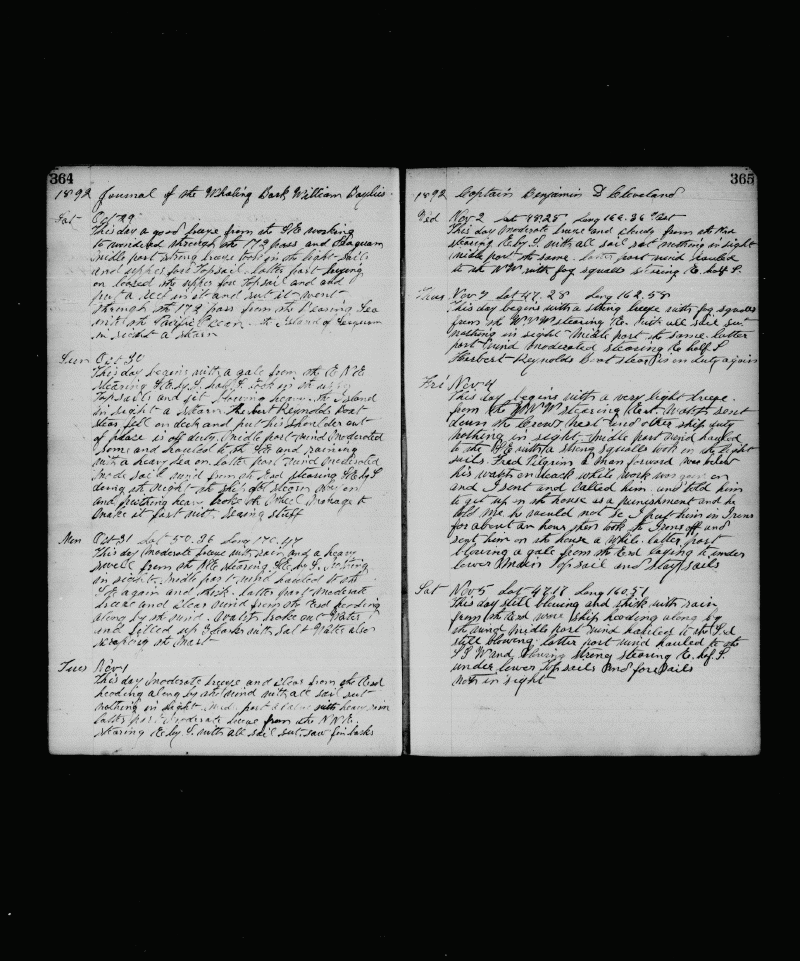 364
1892 Journal of the Whaling Bark William Baylies
Sat Oct 29
This day a good breeze from the SE working
to windward through the 172 pass and
Middle part strong breeze took in the light sails
and upper fore Topsail. latter part laying
on loosed the upper fore Topsail and and
put a reef in it and set it went
through the 172 pass from the Bearing Sea
into the Pacific Ocean. the Island of
in sight a stern
Sun Oct 30
This day begins with a gale from the E N E
stearing SE by S half S took in the upper
Topsails and jib blowing heavy. the Island
in sight a stern Herbert Reynolds Boat
stear fell on deck and put his shoulder out
of place is off duty. middle part wind moderated
som and hauled to the SE and raining
with a heavy sea on. latter part wind moderated
made sail wind from the East stearing SE by S
during the night the ship
and pitching heavy broke the
make it fast with seasing stuff
Mon Oct 31 Lat 50.36 Long 170.47
This day moderate breeze with rain and a heavy
swell from the NE stearing SE by S. nothing
in sight. middle part wind hauled to the
SE again and thick. latter part moderate
breeze and clear wind from the East heading
along by the wind. broke out Water
and filled up with salt Water also
scraping the Mast
Tue Nov 1
This day moderate breeze and clear from the East
heading along by the wind with all sail set
nothing in sight Mid. part a calm with heavy rain
latter par. moderate breeze from the N N E.
stearing E by S. with all sail set. saw finbacks
365
1892 Captain Benjamin D Cleveland
Wed Nov 2 Lat 48.25 Long 166.36 West
This day moderate breeze and cloudy from the Nrd
stearing E by S. with all sail set nothing in sight
midle part the same. latter part wind hauled
to the NW with fog squalls stearing E. half S.
Thurs Nov 3 Lat 47.28 Long 162.58
This day begins with a strong breeze with fog squalls
from the WNW stearing East with all sail set
nothing in sight. Middle part the same. latter
part wind moderated stearing E half S
Herbert Reynolds Boatstearer is on duty again
Fri Nov 4
This day begins with a very light breeze
from the WNW stearing East. Watch sent
down the Crows Nest and other ship duty
nothing in sight. middle part wind hauled
to the SE with a strong squalls took in the light
sails. Fred Pilgrim a man forward was below
his watch on deck while work was goin on
and I sent and called him. and told him
to get up on the house as a punishment and he
told me he would not so I put him in Irons
for about an hour then took the Irons off and
sent him on the house a while. latter part
blowing a gale from the Esrd laying to under
lower Main Topsail and staysails
Sat Nov 5 Lat 47.17 Long 160.51
This day still blowing and thick with rain
from the Esrd wore ship heading along by
the wind middle part wind hauled to the Srd
still blowing. latter part wind hauled to the
S S W and blowing strong stearing E. half S.
under lower Topsails and foresails
noth in sight